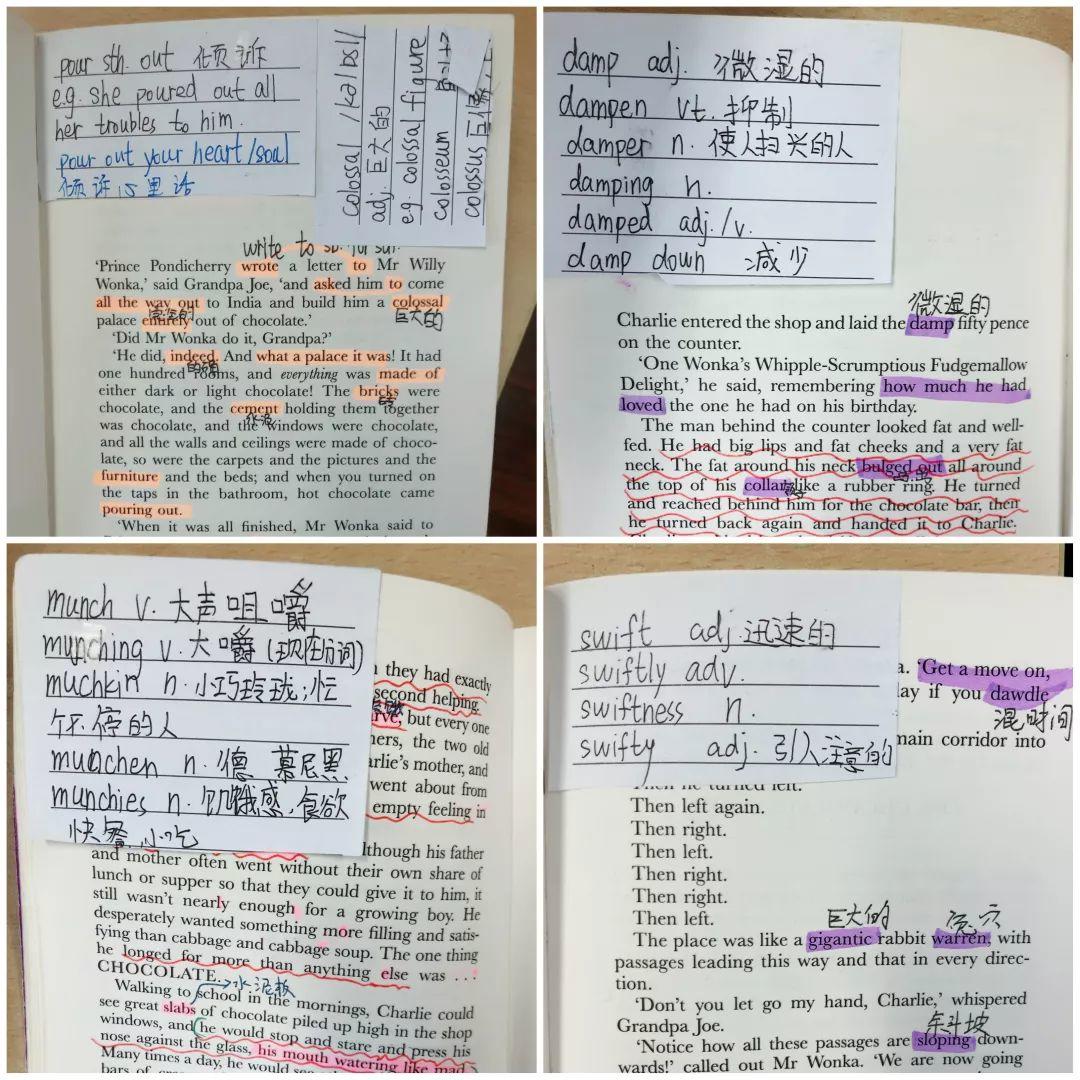 pour sth. out 倾诉
e.g. she poured out all
her troubles to him.
pour out your heart/soul
倾诉心里话
colossal /kəˈlɒsl/
adj. 巨大的
e.g. colossal figure
colosseum
colossus 巨
write to sb.
'Prince Pondicherry wrote a letter to Mr Willy
Wonka,' said Grandpa Joe, 'and asked him to come
all the way out to India and build him a colossal
巨大的
palace entirely out of chocolate.'
'Did Mr Wonka do it, Grandpa?'
'He did, indeed. And what a palace it was! It had
的确
one hundred rooms, and everything was made of
either dark or light chocolate! The bricks were
chocolate, and the cement holding them together
水泥
was chocolate, and the windows were chocolate,
and all the walls and ceilings were made of choco-
late, so were the carpets and the pictures and the
furniture and the beds; and when you turned on
the taps in the bathroom, hot chocolate came
pouring out.'
'When it was all finished, Mr Wonka said to
damp adj. 微湿的
dampen vt. 抑制
damper n. 使人扫兴的人
damping n.
damped adj./v.
damp down 减少
微湿的
Charlie entered the shop and laid the damp fifty pence
on the counter.
'One Wonka's Whipple-Scrumptious Fudgemallow
Delight,' he said, remembering how much he had
loved the one he had on his birthday.
The man behind the counter looked fat and well-
fed. He had big lips and fat cheeks and a very fat
neck. The fat around his neck bulged out all around
the top of his collar like a rubber ring. He turned
and reached behind him for the chocolate bar, then
he turned back again and handed it to Charlie.
munch v. 大声咀嚼
munching v. 大嚼(现在分词)
muchkin n. 小巧玲珑;忙
个不停的人
munchen n. 德 慕尼黑
munchies n. 饥饿感,食欲
快餐,小吃
they had exactly
second helping.
but every one
hers, the two old
arlie's mother, and
went about from
empty feeling in
lthough his father
and mother often went without their own share of
lunch or supper so that they could give it to him, it
still wasn't nearly enough for a growing boy. He
desperately wanted something more filling and satis-
fying than cabbage and cabbage soup. The one thing
he longed for more than anything else was ...
CHOCOLATE.
水泥板
Walking to school in the mornings, Charlie could
see great slabs of chocolate piled up high in the shop
windows, and he would stop and stare and press his
nose against the glass, his mouth watering like mad.
Many times a day, he would see
bars of
swift adj. 迅速的
swiftly adv.
swiftness n.
swifty adj. 引人注意的
a. 'Get a move on,
lay if you dawdle
混时间
main corridor into
Then he turned left.
Then left again.
Then right.
Then left.
Then right.
Then right.
Then left.
巨大的 兔穴
The place was like a gigantic rabbit warren, with
passages leading this way and that in every direc-
tion.
'Don't you let go my hand, Charlie,' whispered
Grandpa Joe.
斜坡
'Notice how all these passages are sloping down-
wards!' called out Mr Wonka. 'We are now going